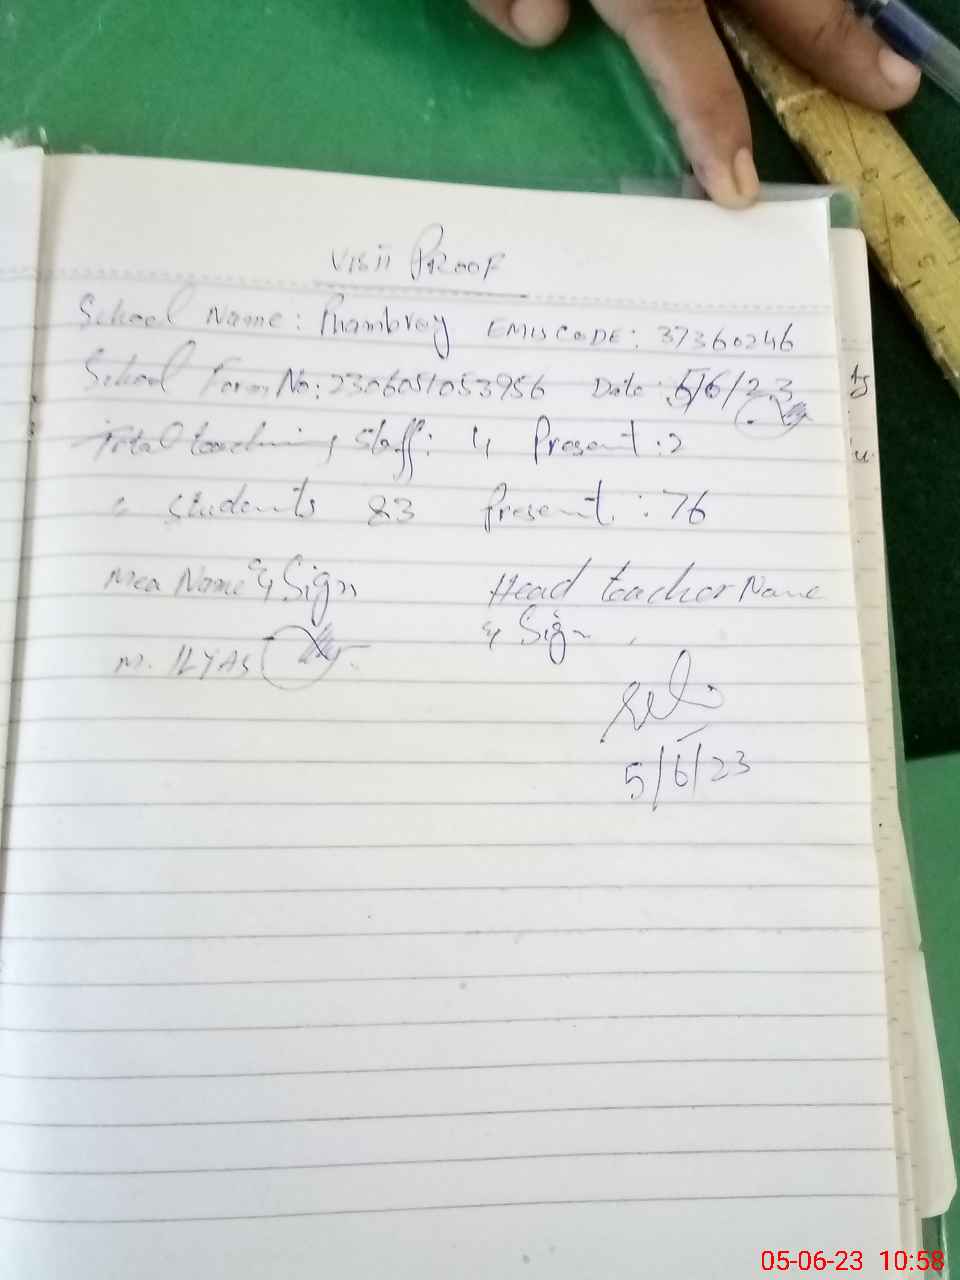 VISIT PROOF
School Name: Phambray EMISCODE: 37360246
School Form No: 2306051053956 Date: 5/6/23
Total teaching staff: 4 Present: 2
" students 83 Present: 76
Mea Name & Sign Head teacher Name
& Sign
M. ILYAS
5/6/23
05-06-23 10:58